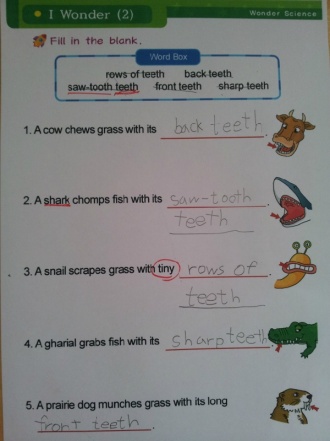 I Wonder (2)
Wonder Science
Fill in the blank.
Word Box
rows of teeth back teeth
saw-tooth teeth front teeth sharp teeth
1. A cow chews grass with its back teeth
2. A shark chomps fish with its saw-tooth
teeth
3. A snail scrapes grass with tiny rows of
teeth
4. A gharial grabs fish with its sharp teeth
5. A prairie dog munches grass with its long
front teeth